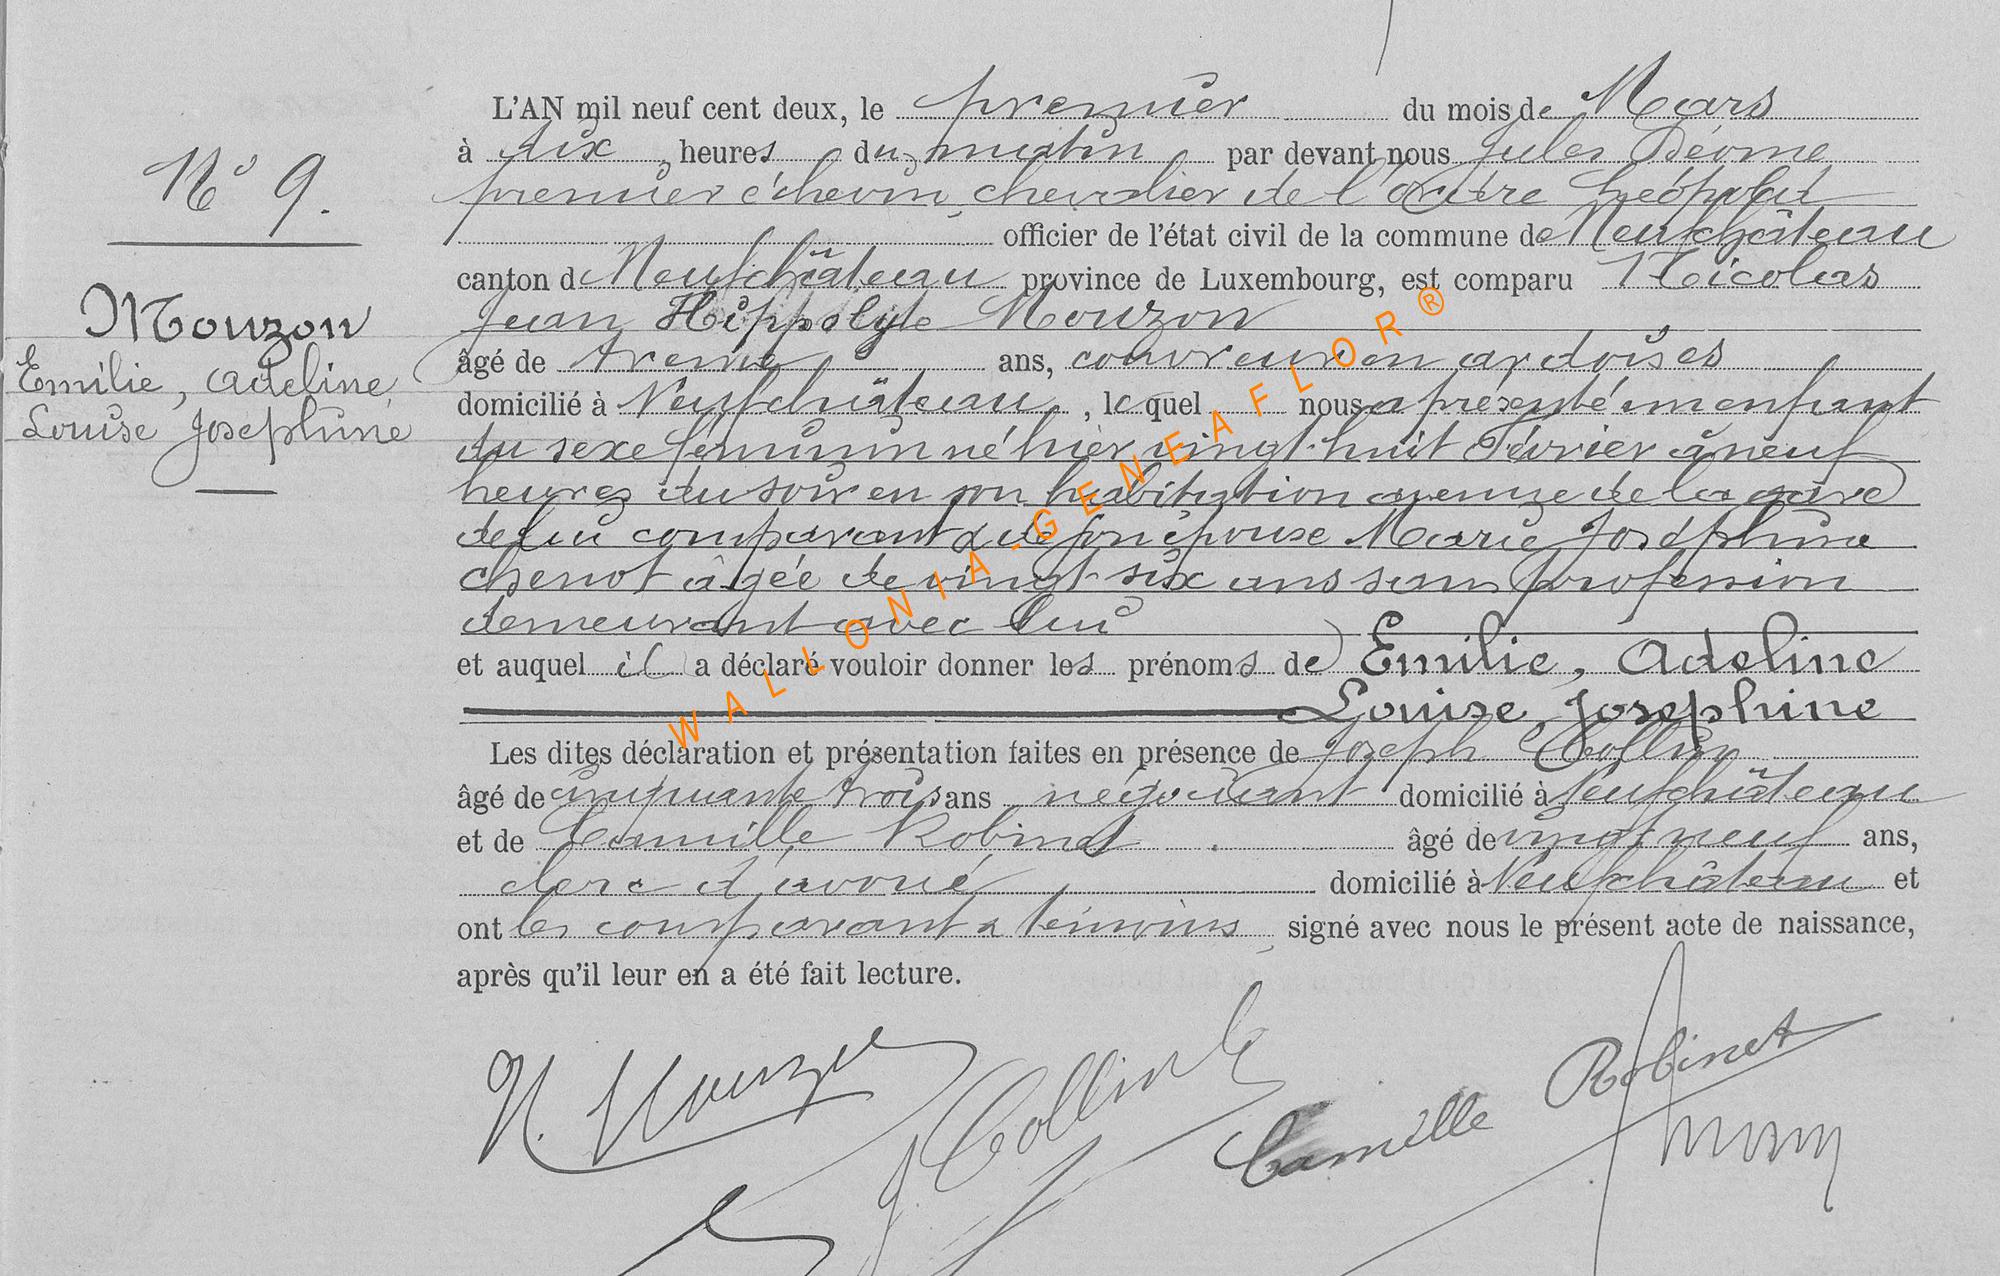 L'AN mil neuf cent deux, le premier du mois de Mars
à dix heures du matin par devant nous Jules
premier échevin, chevalier de l'ordre Léopold
officier de l'état civil de la commune de Neufchâteau
canton de Neufchâteau province de Luxembourg, est comparu Nicolas
Jean Hippolyte Mouzon
âgé de trente ans, couvreur en ardoises
domicilié à Neufchâteau, lequel nous a présenté un enfant
du sexe féminin né hier vingt-huit Février à neuf
heures du soir en son habitation avenue de la gare
de lui comparant & de son épouse Marie Joséphine
Chenot âgée de vingt-six ans sans profession
demeurant avec lui
et auquel il a déclaré vouloir donner les prénoms de Emilie, Adeline
Louise, Josephine
Les dites déclaration et présentation faites en présence de Joseph Collin
âgé de cinquante trois ans négociant domicilié à Neufchâteau
et de Camille Robinet âgé de vingt neuf ans,
clerc d'avoué, domicilié à Neufchâteau et
ont les comparant & témoins signé avec nous le présent acte de naissance,
après qu'il leur en a été fait lecture.
N° 9.
Mouzon
Emilie, Adeline,
Louise Josephine
N. Mouzon
J. Collin
Camille Robinet
WALLONIA-GENEAFLOR®